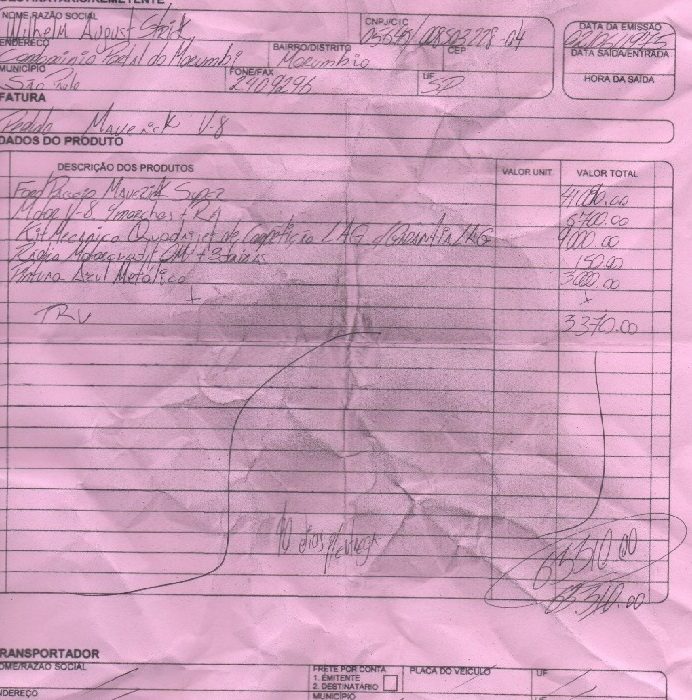 DESTINATÁRIO/REMETENTE
NOME RAZÃO SOCIAL CNPJ/CIC DATA DA EMISSÃO
Wilhelm August
ENDEREÇO BAIRRO/DISTRITO CEP DATA SAÍDA/ENTRADA
Portal do Morumbi Morumbi
MUNICÍPIO FONE/FAX UF HORA DA SAÍDA
São Paulo 2409296 SP
FATURA
Pedido Maverick V-8
DADOS DO PRODUTO
DESCRIÇÃO DOS PRODUTOS VALOR UNIT. VALOR TOTAL
Ford Maverick Super
Motor V-8 4 marchas + RA 6700.00
Kit Mecânico Quadrijet de Competição LAG c/Garantia LAG 9000.00
Rádio 150.00
Pintura Azul Metálico 3000.00
TRU 3370.00
90 dias p/entrega
63510.00
63.310.00
TRANSPORTADOR
NOME/RAZÃO SOCIAL FRETE POR CONTA PLACA DO VEÍCULO UF
1. EMITENTE
2. DESTINATÁRIO
ENDEREÇO MUNICÍPIO UF